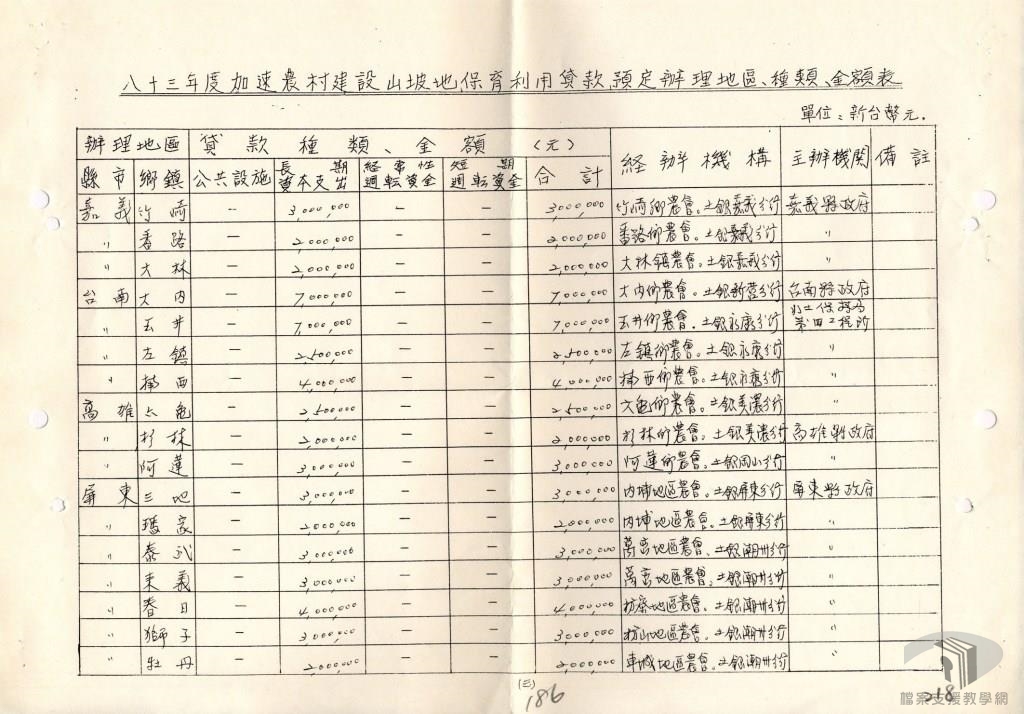 八十三年度加速農村建設山坡地保育利用貸款預定辦理地區、種類、金額表
單位：新台幣元.
辦理地區 貸款種類、金額（元） 経辦機構 主辦機関 備註
縣市 鄉鎮 公共設施 長期資本支出 経常性週転資金 短期週転資金 合計
嘉義 竹崎 － 3,000,000 － － 3,000,000 竹崎鄉農會。土銀嘉義分行 嘉義縣政府
〃 番路 － 2,000,000 － － 2,000,000 番路鄉農會。土銀嘉義分行 〃
〃 大林 － 2,000,000 － － 2,000,000 大林鎮農會。土銀嘉義分行 〃
台南 大內 － 7,000,000 － － 7,000,000 大內鄉農會。土銀新營分行 台南縣政府
〃 玉井 － 7,000,000 － － 7,000,000 玉井鄉農會。土銀永康分行 水土保持局第四工程所
〃 左鎮 － 2,500,000 － － 2,500,000 左鎮鄉農會。土銀永康分行 〃
〃 楠西 － 4,000,000 － － 4,000,000 楠西鄉農會。土銀永康分行 〃
高雄 六龜 － 2,500,000 － － 2,500,000 六龜鄉農會。土銀美濃分行 〃
〃 杉林 － 2,000,000 － － 2,000,000 杉林鄉農會。土銀美濃分行 高雄縣政府
〃 阿蓮 － 3,000,000 － － 3,000,000 阿蓮鄉農會。土銀岡山分行 〃
屏東 三地 － 3,000,000 － － 3,000,000 內埔地區農會。土銀屏東分行 屏東縣政府
〃 瑪家 － 2,000,000 － － 2,000,000 內埔地區農會。土銀屏東分行 〃
〃 泰武 － 3,000,000 － － 3,000,000 萬巒地區農會。土銀潮州分行 〃
〃 来義 － 3,000,000 － － 3,000,000 萬巒地區農會。土銀潮州分行 〃
〃 春日 － 4,000,000 － － 4,000,000 枋寮地區農會。土銀潮州分行 〃
〃 獅子 － 3,000,000 － － 3,000,000 枋山地區農會。土銀潮州分行 〃
〃 牡丹 － 2,000,000 － － 2,000,000 車城地區農會。土銀潮州分行 〃
(三)
186
218
檔案支援教學網